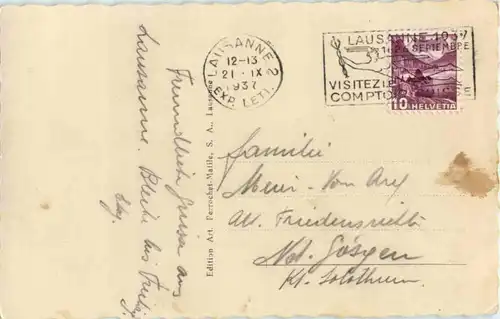 LAUSANNE 2
12-13
21. IX
1937
EXP. LETT.
LAUSANNE-1937
SEPTEMBRE
VISITEZ LE
COMPTOIR
10 HELVETIA
Freundliche Grüsse aus
Lausanne. Bleibe bis Freitag.
Edition Art. Perrochet-Matile, S. A., Lausanne
Familie
Meier-Von Arx
alt. Friedensrichter
Nd. Gösgen
Kt. Solothurn.